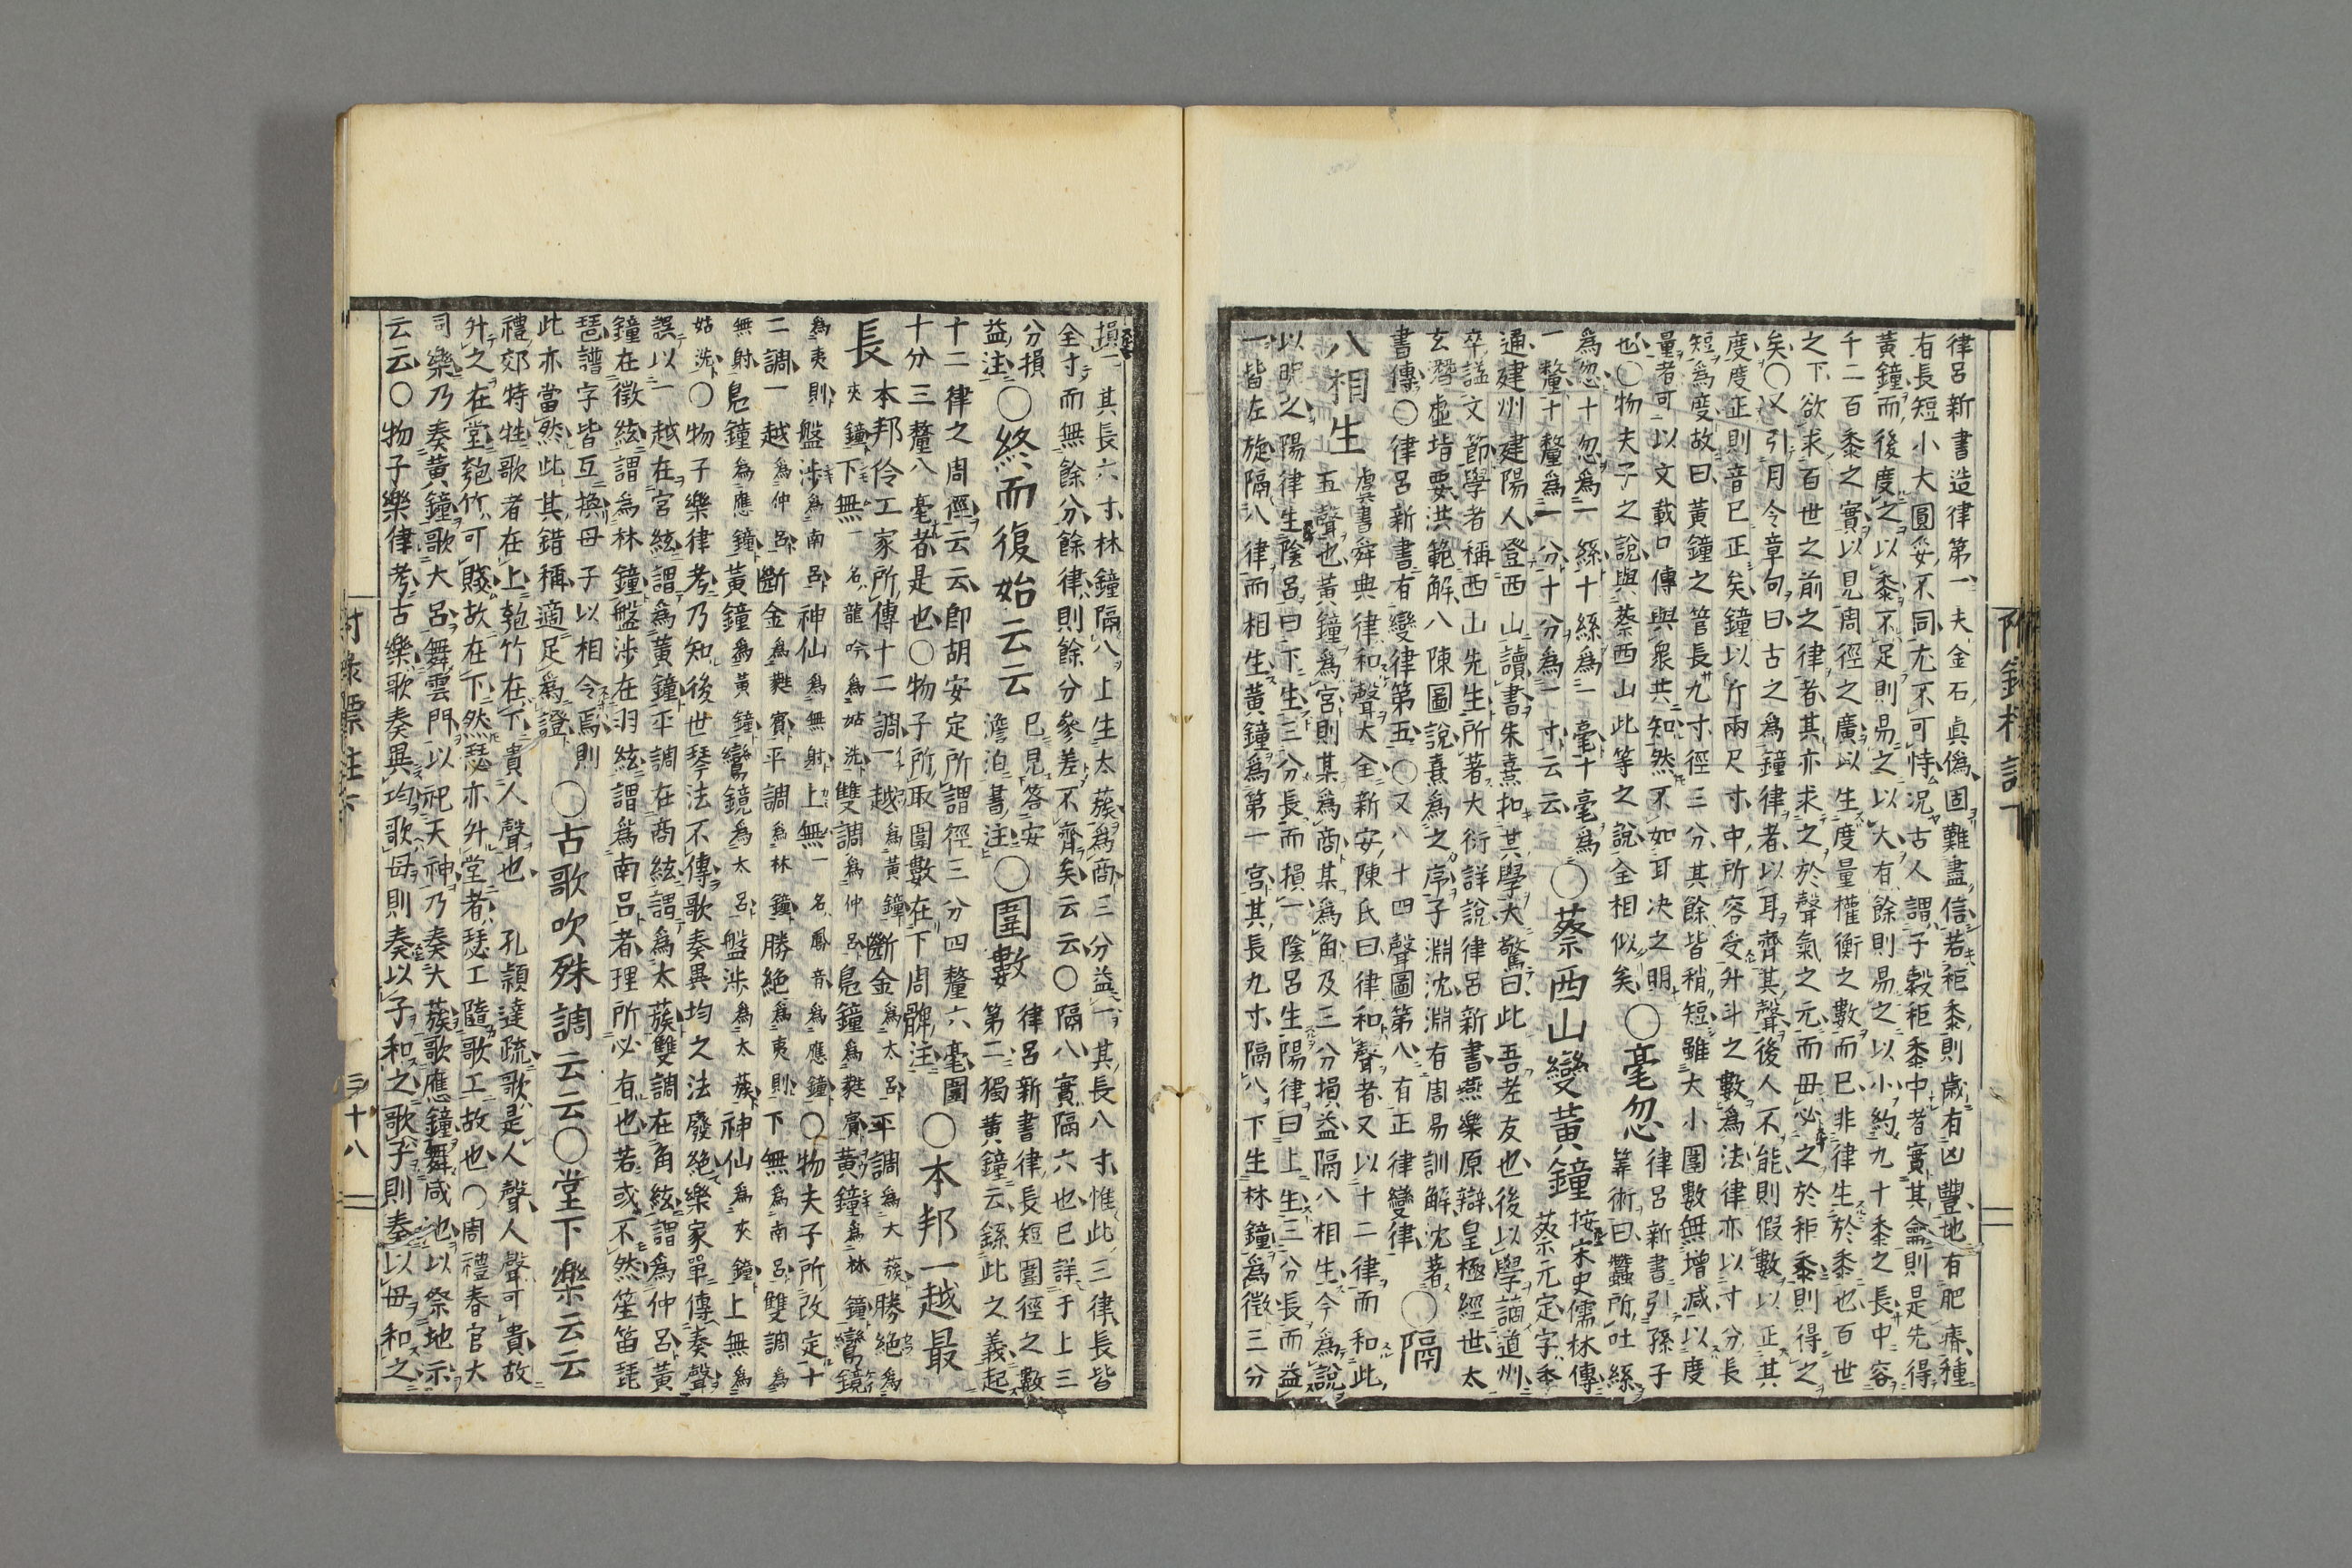 律呂新書造律第一夫金石眞僞固難盡信若秬黍則歲有凶豐地有肥瘠種
有長短小大圓妥不同尢不可恃況古人謂子穀秬黍中者實其龠則是先得
黃鐘而後度之以黍不足則易之以大有餘則易之以小約九十黍之長中容
千二百黍之實以見周徑之廣以生度量權衡之數而已非律生於黍也百世
之下欲求百世之前之律者其亦求之於聲氣之元而毋必之於秬黍則得之
矣〇又引月令章句曰古之爲鐘律者以耳齊其聲後人不能則假數以正其
度度正則音已正矣鐘以斤兩尺寸中所容受升斗之數爲法律亦以寸分長
短爲度故曰黃鐘之管長九寸徑三分其餘皆稍短雖大小圍數無增減以度
量者可以文載口傳與衆共知然不如耳決之明
也〇物夫子之說與蔡西山此等之說全相似矣
〇毫忽
律呂新書引孫子
筭術曰蠶所吐絲
爲忽十忽爲一絲十絲爲一毫十毫爲
一釐十釐爲一分十分爲一寸云云
〇蔡西山變黃鐘
按宋史儒林傳
蔡元定字季
通建州建陽人登西山讀書朱熹扣其學大驚曰此吾老友也後以學謫道州
卒諡文節學者稱西山先生所著大衍詳說律呂新書燕樂原辯皇極經世太
玄潛虛指要洪範解八陳圖說熹爲之序子淵沈淵有周易訓解沈著
書傳〇律呂新書有變律第五〇又八十四聲圖第八有正律變律
〇隔
八相生
虞書舜典律和聲大全新安陳氏曰律和聲者又以十二律而和此
五聲也黃鐘爲宮則某爲商某爲角及三分損益隔八相生今爲說
以明之陽律生陰呂曰下生三分長而損一陰呂生陽律曰上生三分長而益
一皆左旋隔八律而相生黃鐘爲第一宮其長九寸隔八下生林鐘爲徵三分
損一其長六寸林鐘隔八上生太蔟爲商三分益一其長八寸惟此三律長皆
全寸而無餘分餘律則餘分參差不齊矣云云〇隔八實隔六也已詳于上三
分損
益注
〇終而復始云云
已見答安
澹泊書注
〇圍數
律呂新書律長短圍徑之數
第二獨黃鐘云繇此之義起
十二律之周徑云云卽胡安定所謂徑三分四釐六毫圍
十分三釐八毫者是也〇物子所取圍數在下周髀注
〇本邦一越最
長
本邦伶工家所傳十二調一越爲黃鐘斷金爲太呂平調爲大蔟勝絕爲
夾鐘下無一名龍吟爲姑洗雙調爲仲呂鳧鐘爲蕤賓黃鐘爲林鐘鸞鏡
爲夷則盤涉爲南呂神仙爲無射上無一名鳳音爲應鐘〇物夫子所改定十
二調一越爲仲呂斷金爲蕤賓平調爲林鐘勝絕爲夷則下無爲南呂雙調爲
無射鳧鐘爲應鐘黃鐘爲黃鐘鸞鏡爲太呂盤涉爲太蔟神仙爲夾鐘上無爲
姑洗〇物子樂律考乃知後世琴法不傳歌奏異均之法廢絕樂家單傳奏聲
誤以一越在宮絃謂爲黃鐘平調在商絃謂爲太蔟雙調在角絃謂爲仲呂黃
鐘在徵絃謂爲林鐘盤涉在羽絃謂爲南呂者理所必有也若或不然笙笛琵
琶譜字皆互換母子以相令焉則
此亦當然此其錯稱適足爲證
〇古歌吹殊調云云〇堂下樂云云
禮郊特牲歌者在上匏竹在下貴人聲也孔穎達疏歌是人聲人聲可貴故
升之在堂匏竹可賤故在下然瑟亦升堂者瑟工隨歌工故也〇周禮春官大
司樂乃奏黃鐘歌大呂舞雲門以祀天神乃奏大蔟歌應鐘舞咸池以祭地示
云云〇物子樂律考古樂歌奏異均歌母則奏以子和之歌子則奏以母和之
三十八